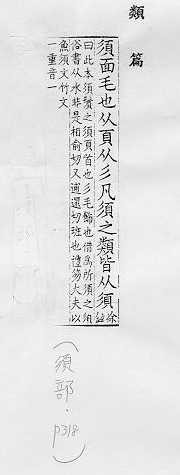 類篇
須面毛也从頁从彡凡須之類皆从須徐鉉
曰此本須鬢之須頁首也彡毛飾也借為所須之須
俗書从水非是相俞切又逋還切班也禮笏大夫以
魚須文竹文
一重音一
(須部.p318)